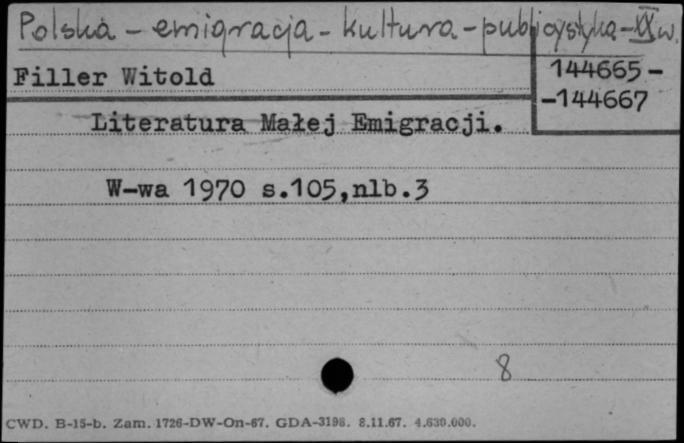 Polska - emigracja - kultura - publicystyka - XX w.
Filler Witold
144665 -
-144667
Literatura Małej Emigracji.
W-wa 1970 s.105,nlb.3
8
CWD. B-15-b. Zam. 1726-DW-On-67. GDA-3198. 8.11.67. 4.630.000.